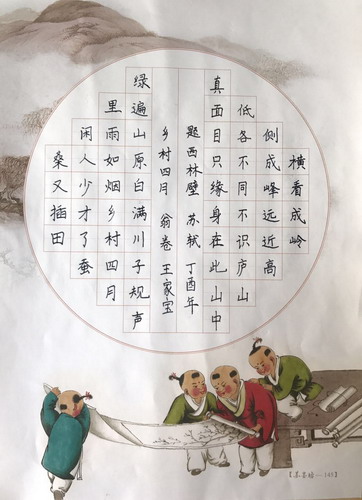 横看成岭
侧成峰远近高
低各不同不识庐山
真面目只缘身在此山中
题西林壁 苏轼 丁酉年
乡村四月 翁卷 王家宝
绿遍山原白满川子规声
里雨如烟乡村四月
闲人少才了蚕
桑又插田